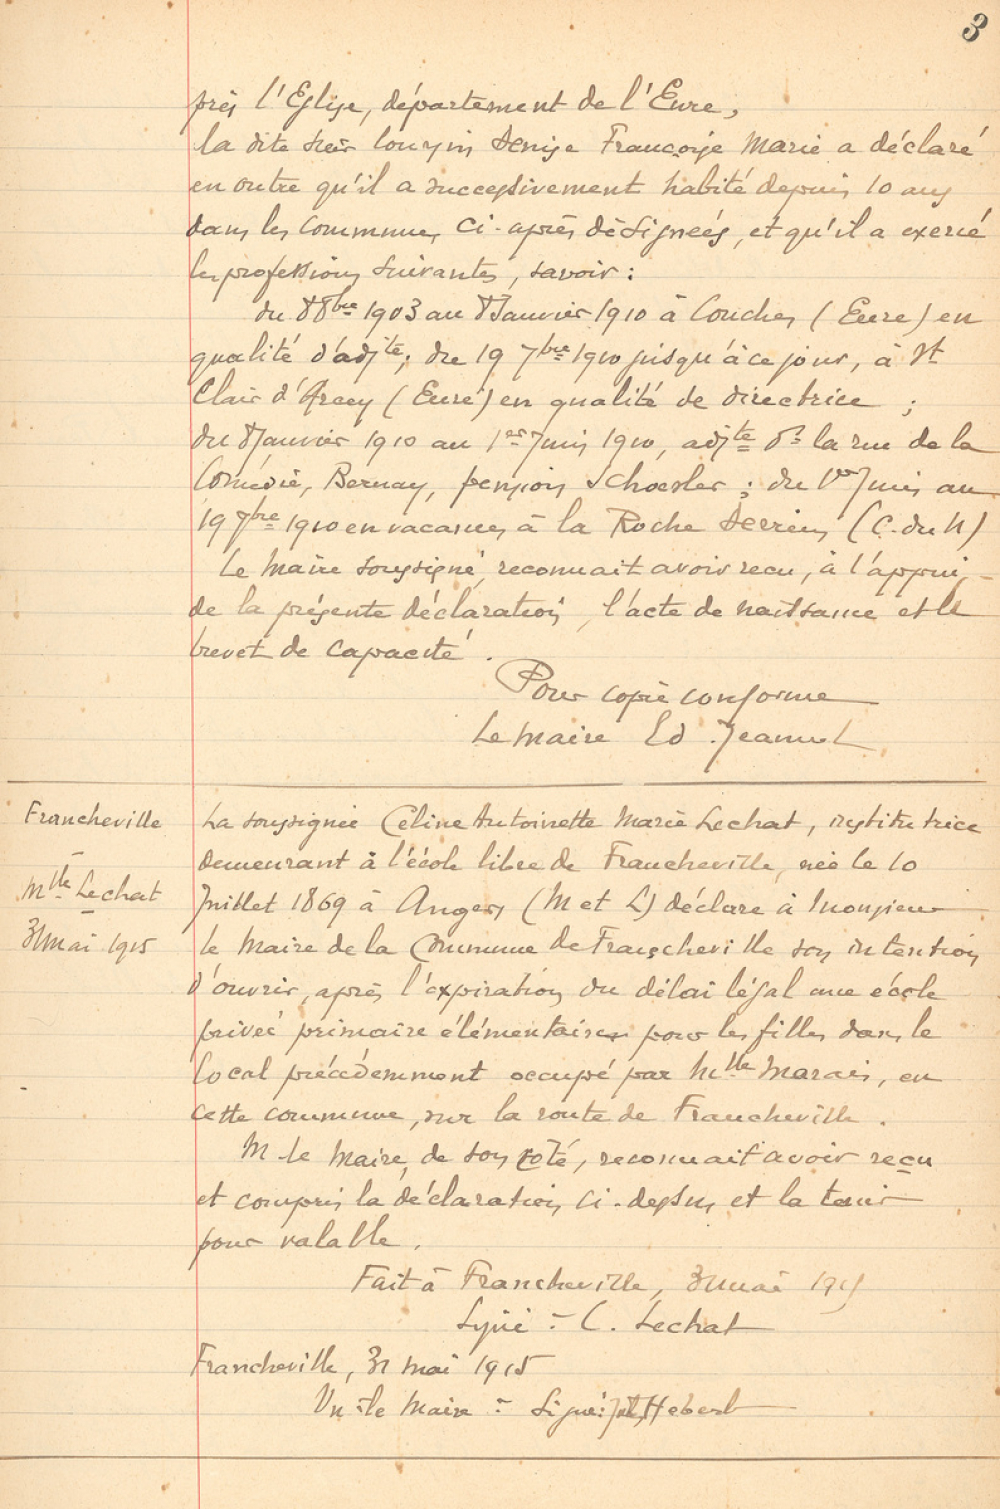 3
près l'Eglise, département de l'Eure,
la dite Denise Françoise Marie a déclaré
en outre qu'il a successivement habité depuis 10 ans
dans les communes ci-après désignées, et qu'il a exercé
les professions suivantes, savoir :
du 8bre 1903 au 8 Janvier 1910 à Conches (Eure) en
qualité d'adjte ; du 19 7bre 1910 jusqu'à ce jour, à St
Clair d'Arcey (Eure) en qualité de directrice ;
du 8 Janvier 1910 au 1er Juin 1910, adjte la rue de la
Comédie, Bernay, pension ; du 1er Juin au
19 7bre 1910 en vacances à la Roche Derrien (C. du N)
Le Maire soussigné, reconnait avoir reçu, à l'appui
de la présente déclaration, l'acte de naissance et le
brevet de capacité.
Pour copie conforme
Le Maire Ed
Francheville
Mlle Lechat
31 mai 1915
La soussignée Céline Antoinette Marie Lechat, institutrice
demeurant à l'école libre de Francheville, née le 10
Juillet 1869 à Angers (M et L) déclare à Monsieur
le Maire de la Commune de Francheville son intention
d'ouvrir, après l'expiration du délai légal une école
privée primaire élémentaire pour les filles dans le
local précédemment occupé par Mlle Marais, en
cette commune, sur la route de Francheville.
M. le Maire, de son coté, reconnait avoir reçu
et compris la déclaration ci-dessus et la tenir
pour valable.
Fait à Francheville, 31 mai 1915
Signé : C. Lechat
Francheville, 31 mai 1915
Vu : le Maire : Signé : Hebert